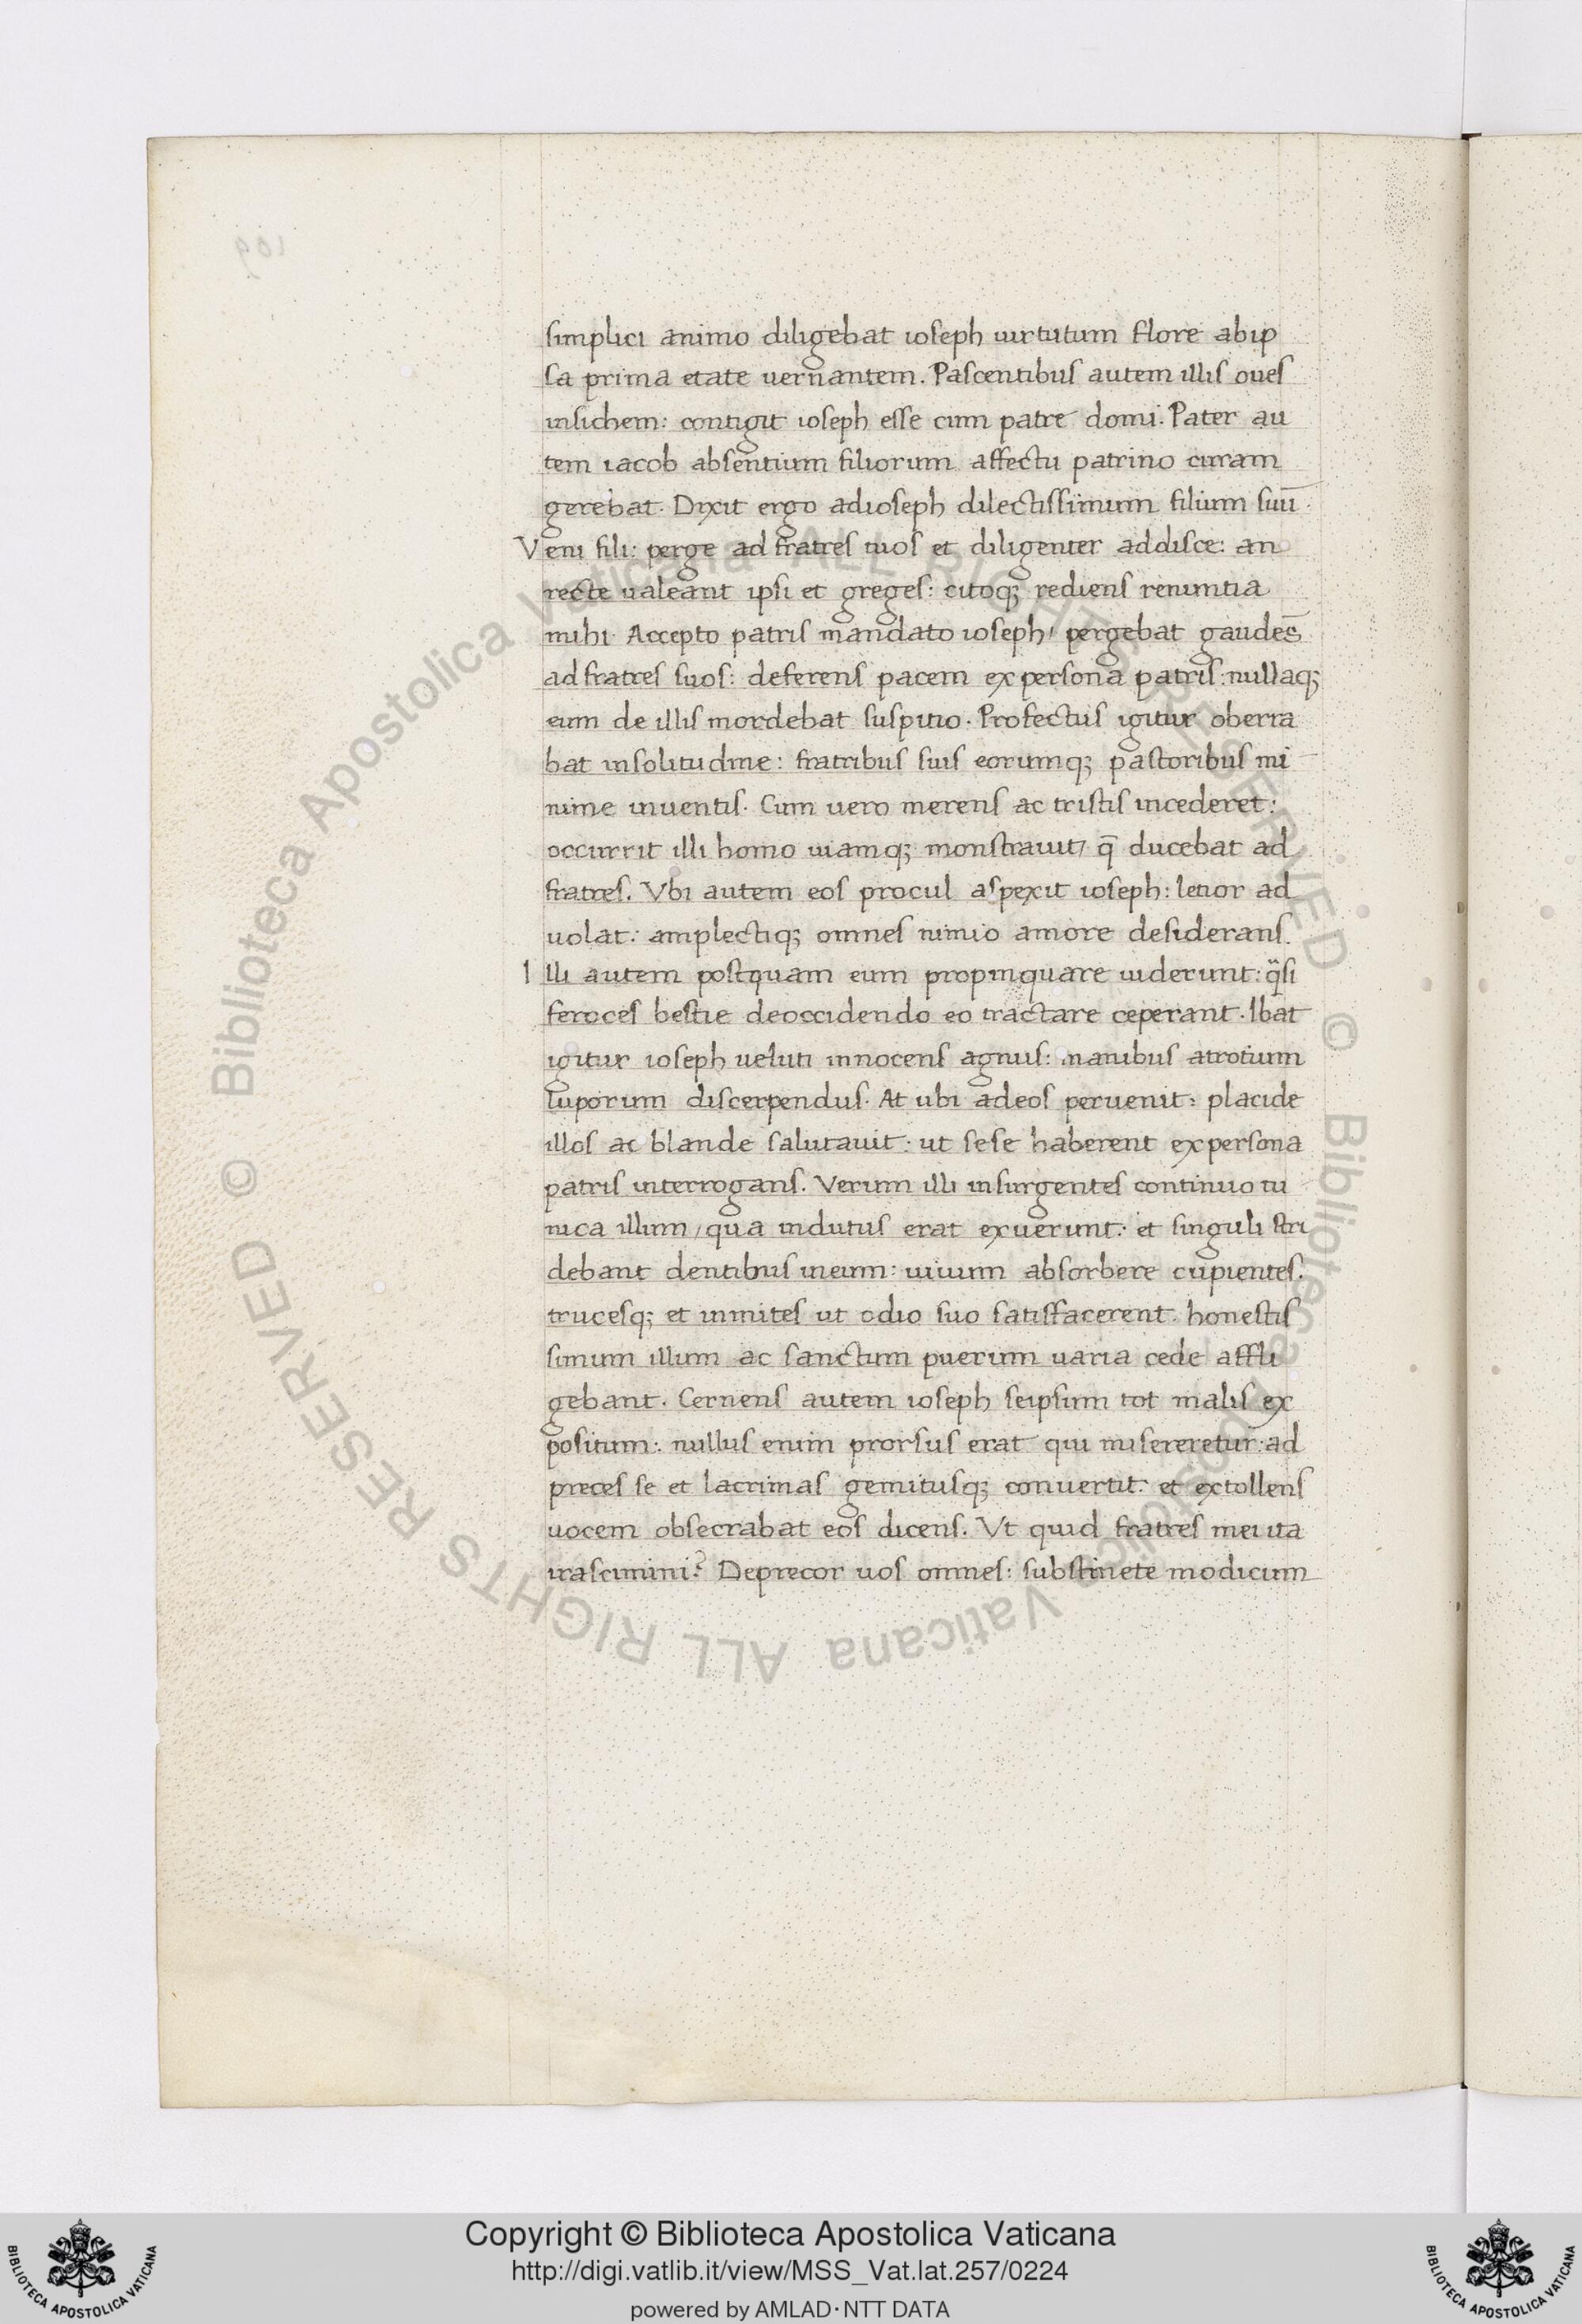 simplici animo diligebat ioseph uirtutum flore abip
sa prima etate uernantem. Pascentibus autem illis oues
insichem: contigit ioseph esse cum patre domi. Pater au
tem iacob absentium filiorum affectu patrino curam
gerebat. Dixit ergo adioseph dilectissimum filium suū.
Veni fili: perge ad fratres tuos et diligenter addisce: an
recte ualeant ipsi et greges: citoq; rediens renuntia
mihi. Accepto patris mandato ioseph/ pergebat gaudēs
ad fratres suos: deferens pacem ex persona patris: nullaq;
eum de illis mordebat suspitio. Profectus igitur oberra
bat insolitudine: fratribus suis eorumq; pastoribus mi
nime inuentis. Cum uero merens ac tristis incederet:
occurrit illi homo uiamq; monstrauit/ q̄ ducebat ad
fratres. Vbi autem eos procul aspexit ioseph: letior ad
uolat: amplectiq; omnes nimio amore desiderans.
Illi autem postquam eum propinquare uiderunt: q̃si
feroces bestie deoccidendo eo tractare ceperant. Ibat
igitur ioseph ueluti innocens agnus: manibus atrotium
luporum discerpendus. At ubi adeos peruenit: placide
illos ac blande salutauit: ut sese haberent ex persona
patris interrogans. Verum illi insurgentes continuo tu
nica illum/ qua indutus erat exuerunt: et singuli stri
debant dentibus ineum: uiuum absorbere cupientes.
trucesq; et inmites ut odio suo satisfacerent. honestis
simum illum ac sanctum puerum uaria cede affli
gebant. Cernens autem ioseph seipsum tot malis ex
positum: nullus enim prorsus erat qui misereretur: ad
preces se et lacrimas gemitusq; conuertit. et extollens
uocem obsecrabat eos dicens. Vt quid fratres mei ita
irascimini? Deprecor uos omnes: substinete modicum
Copyright © Biblioteca Apostolica Vaticana
http://digi.vatlib.it/view/MSS_Vat.lat.257/0224
powered by AMLAD·NTT DATA